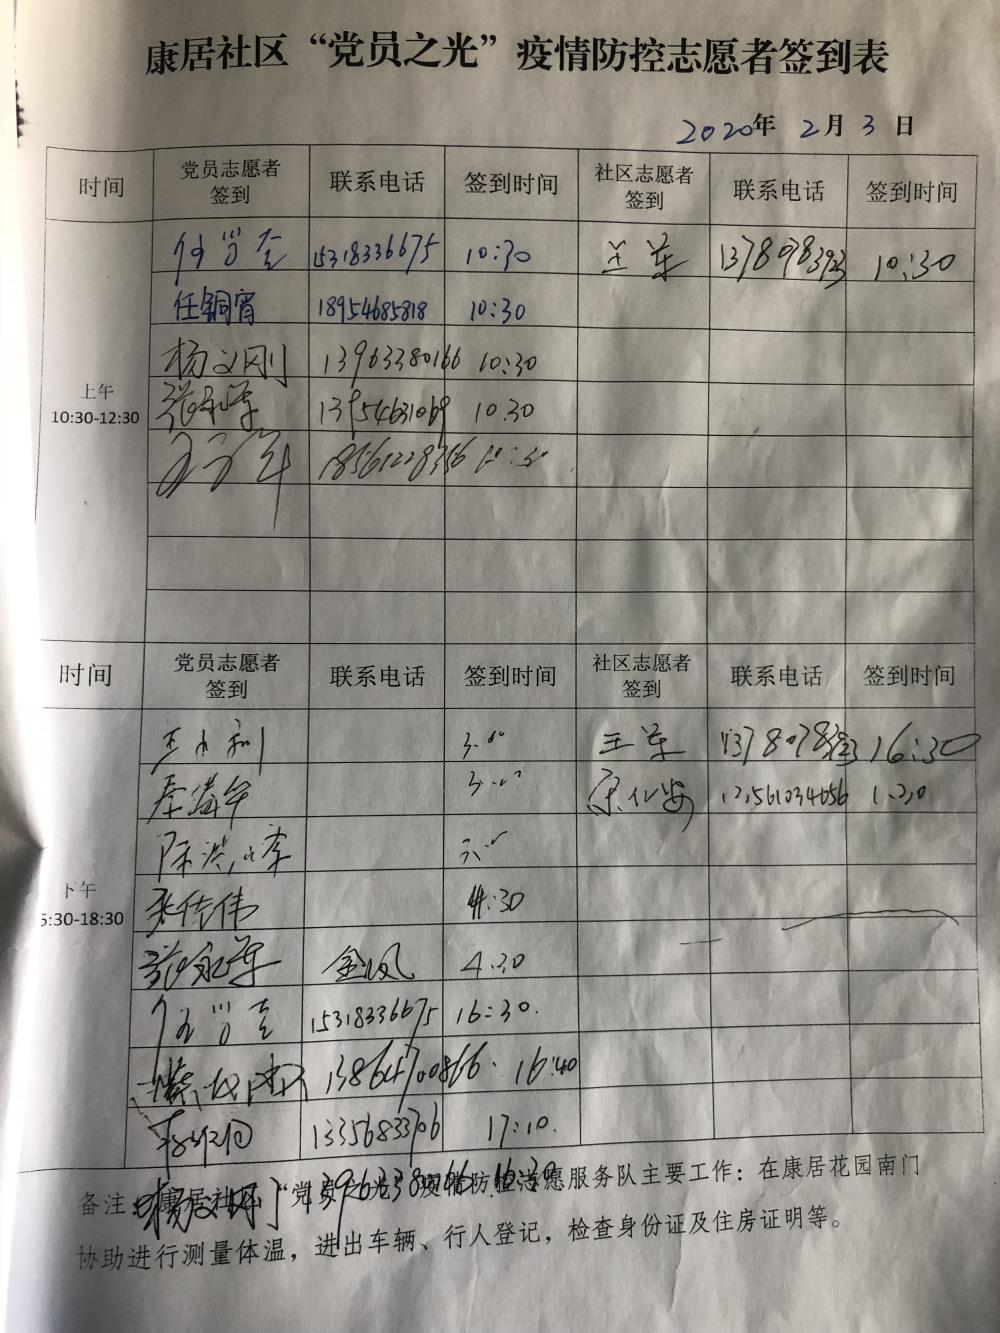 康居社区“党员之光”疫情防控志愿者签到表
2020年 2月 3日
时间 党员志愿者签到 联系电话 签到时间 社区志愿者签到 联系电话 签到时间
上午 10:30-12:30
15318336675 10:30 王军 13780783923 10:30
任铜宵 18954685818 10:30
杨文刚 13963380166 10:30
张永军 13954631069 10.30
18561228356
时间 党员志愿者签到 联系电话 签到时间 社区志愿者签到 联系电话 签到时间
下午 6:30-18:30
王军 13780783923 16:30
秦
陈洪
张传伟 4:30
张永军 金凤 4.30
15318336675 16:30.
13864700866. 16:40
13356833706 17:10.
备注:康居社区“党员之光”疫情防控志愿服务队主要工作：在康居花园南门
杨文刚 13963380166 16:30
协助进行测量体温，进出车辆、行人登记，检查身份证及住房证明等。